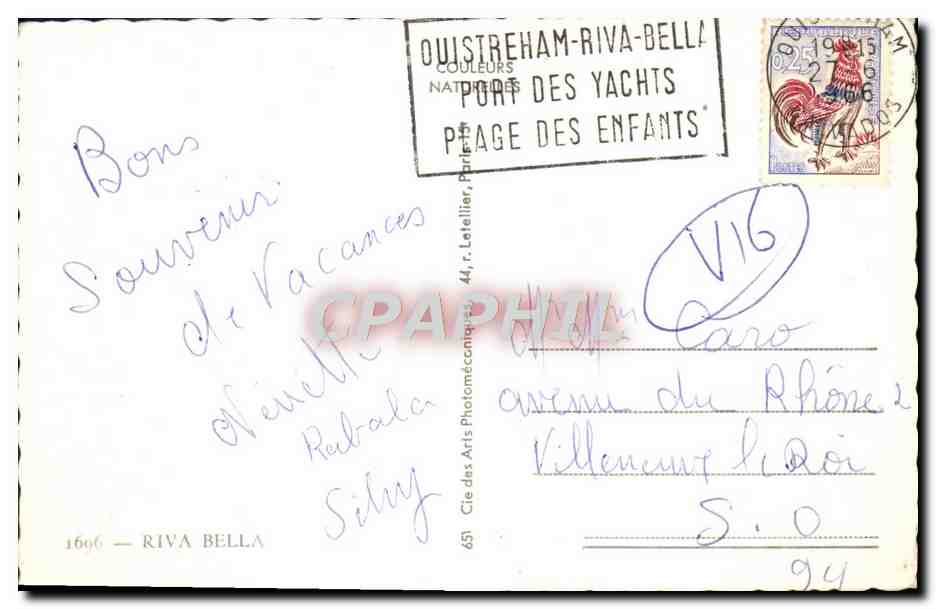 OUISTREHAM-RIVA-BELLA
PORT DES YACHTS
PLAGE DES ENFANTS
COULEURS
NATURELLES
OUISTREHAM
19 H 15
0,25
POSTES
Bons
Souvenir
de Vacances
Rabala
1696 — RIVA BELLA
651 Cie des Arts Photomécaniques, 44, r. Letellier, Paris-15e
V16
CPAPHIL
Caro
avenu du Rhône 2
Villeneuve le Roi
S. O
94